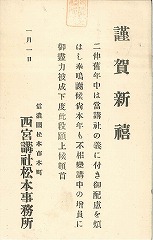 謹賀新禧
二伸舊年中は當講社の義に付き御配慮を煩
はし奉鳴謝候尚本年も不相變講中の增員に
御盡力被成下度此段願上候頓首
一月一日
信濃國松本市本町
西宮講社松本事務所